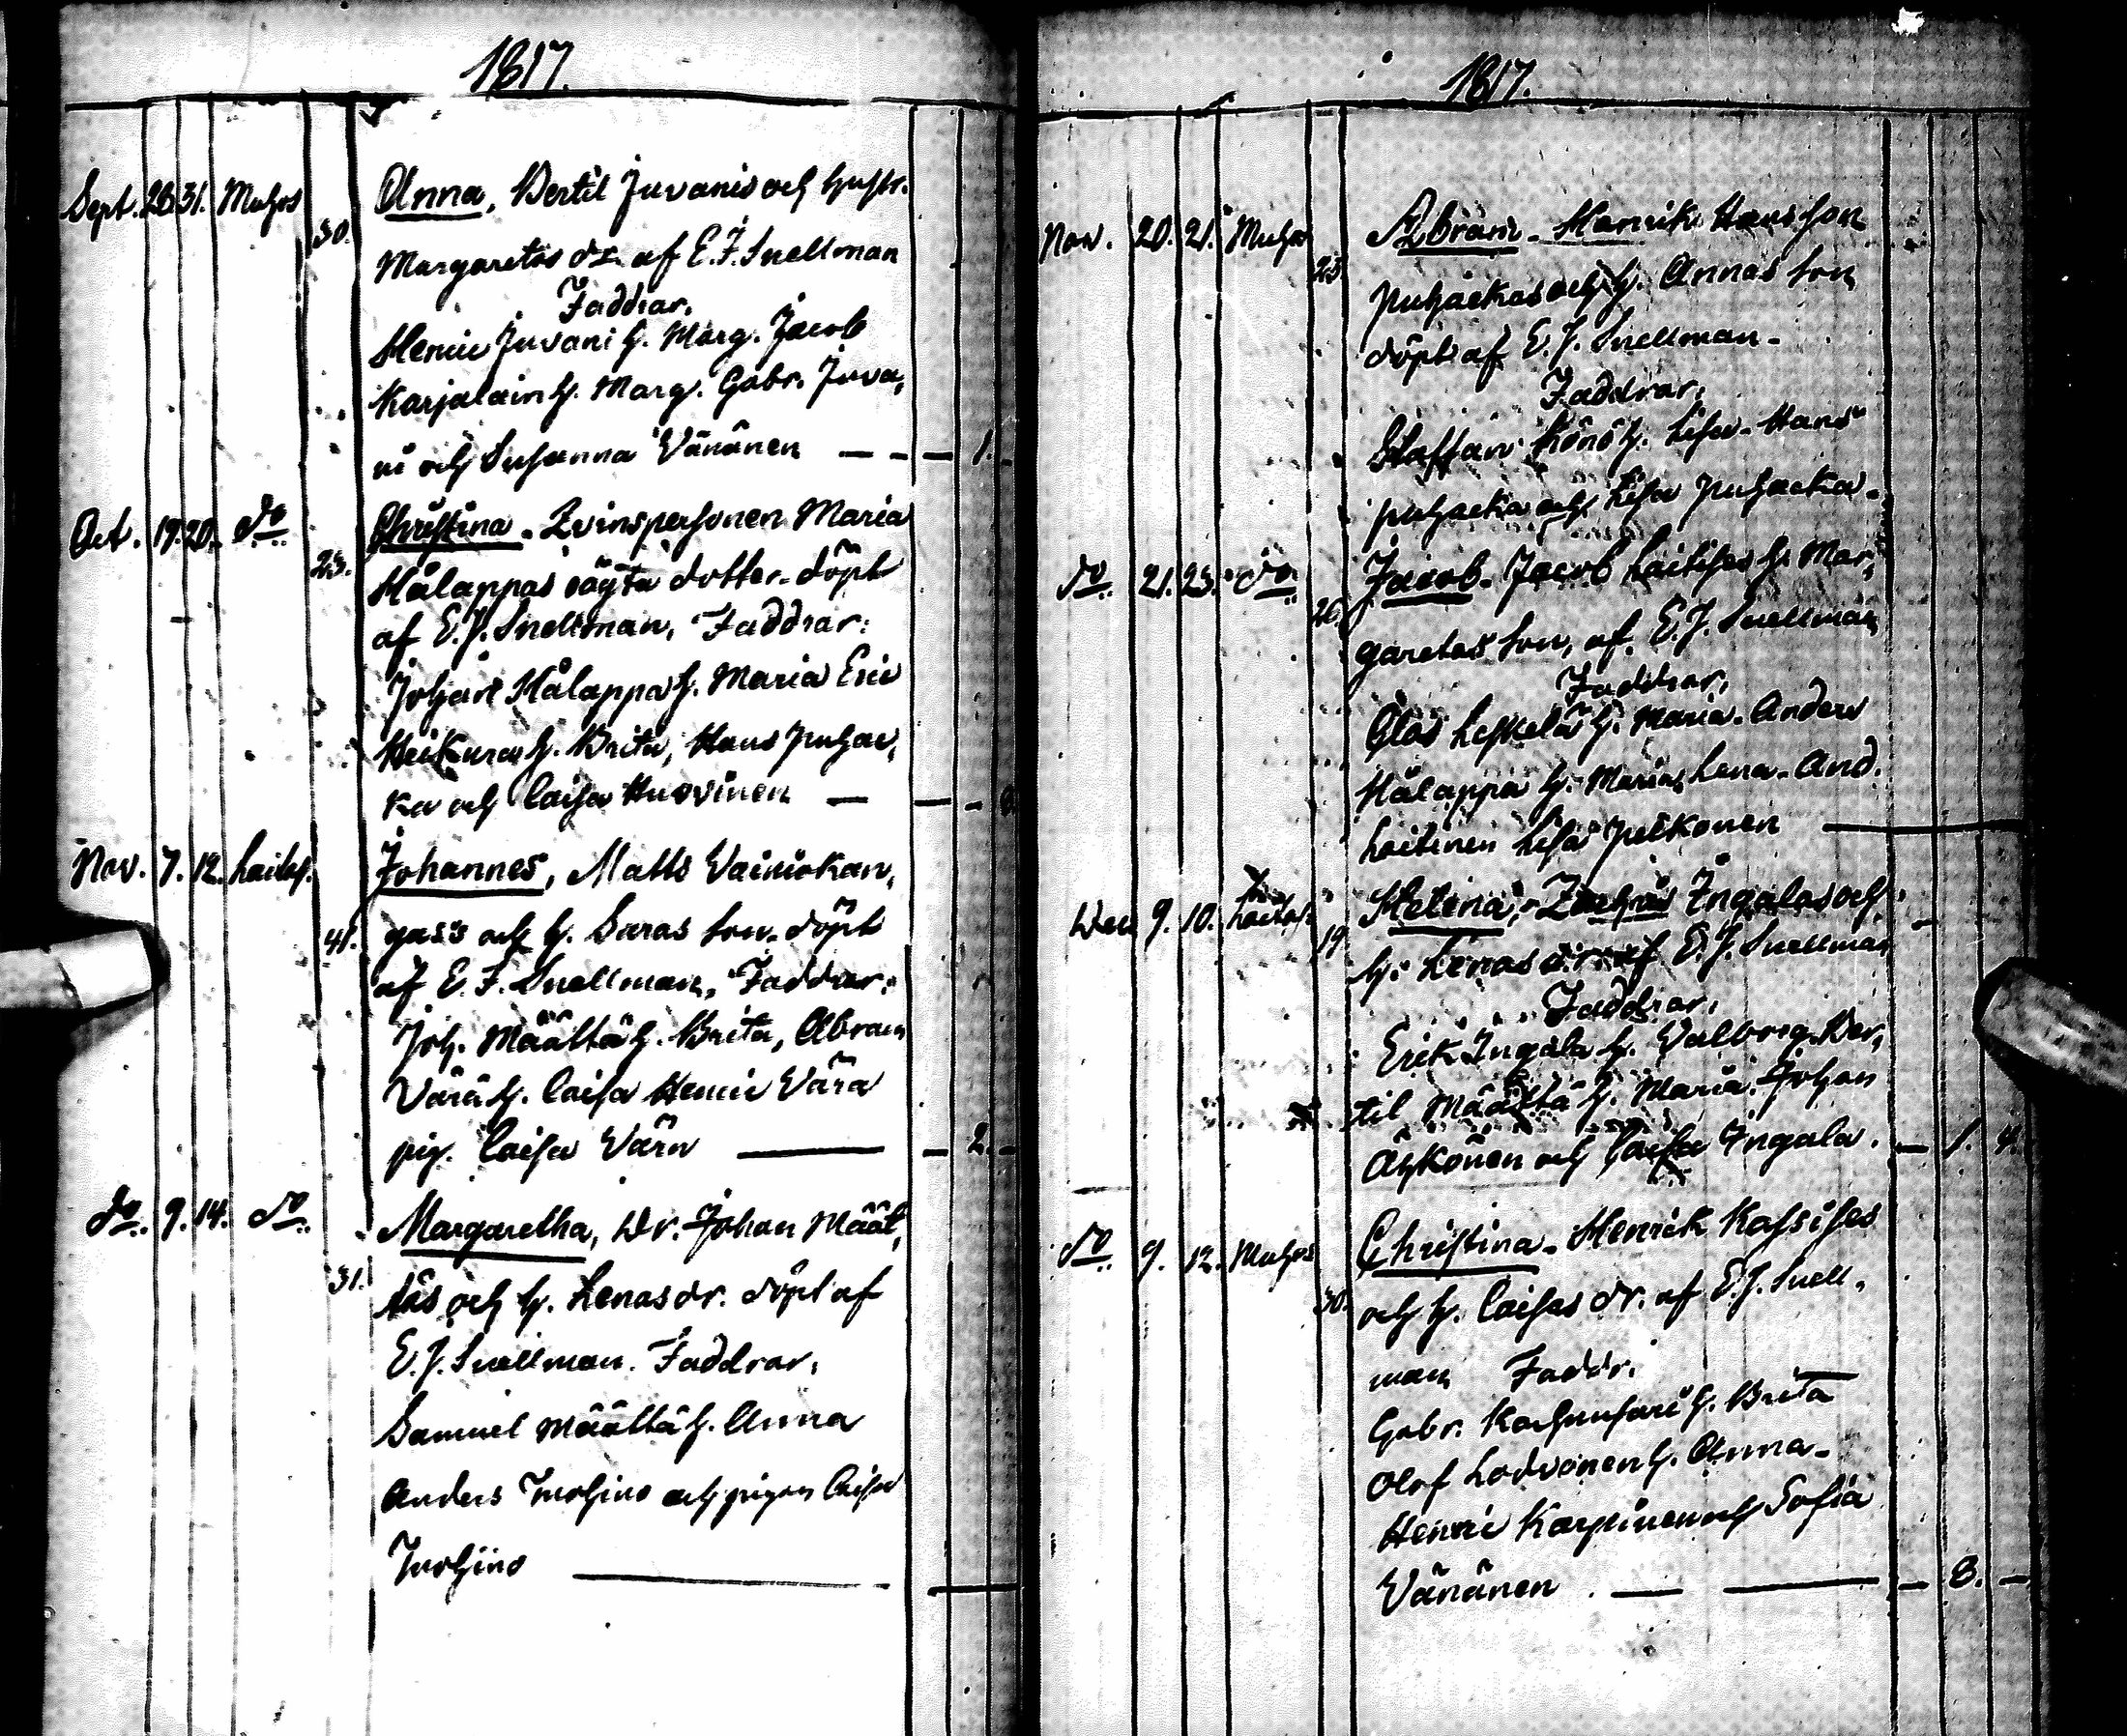 1817.
Sept. 26 31. Muhos 30. Anna, Bertil Juvanis och hustr.
Margaretas dr. af E. J. Snellman
Faddrar.
Henric Juvani h. Marg. Jacob
Karjalain h. Marg. Gabr. Juva,
ni och Susanna Vänänen — 1. —
Oct. 19. 20. do 23. Christina. Qvinspersonen Maria
Hålappas oägta dotter. döpt
af E. J. Snellman, Faddrar:
Johan Hålappa h. Maria Eric
Heikura h. Brita, Hans Puhac,
ka och Caisa Huovinen —
Nov. 7. 12. Laitas. 41. Johannes, Matts Vainiokan,
gas's och h. Saras son. döpt
af E. J. Snellman, Faddrar:
Joh. Määttä h. Brita, Abram
Värä h. Caisa Henric Värä
pig. Caisa Värä — 2. —
do. 9. 14. do 31. Margaretha, Dr. Johan Määt,
täs och h. Lenas dr. döpt af
E. J. Snellman. Faddrar,
Samuel Määttä h. Anna
Anders Tuohino och pigan Caisa
Tuohino —
1817.
Nov. 20. 21. Muhos 23 Abram. Henrik Hansson
Puhackas och h. Annas son
döpt af E. J. Snellman.
Faddrar,
Staffan Könö h. Lisa. Hans
Puhacka och Lisa Puhacka.
do. 21. 23. do. 26. Jacob. Jacob Laitises h. Mar,
garetas son, af E. J. Snellman
Faddrar,
Olas Leskelä h. Maria. Anders
Hålappa h. Maria Lena. And.
Laitinen Lisa Pelkonen —
Dec 9. 10. 19 Helena, Zachris Ingalas och
h. Lenas dr. af E. J. Snellman
Faddrar,
Erik Ingala h. Valborg. Ber,
til Määttä h. Maria. Johan
Äykönen och Caisa Ingala. — 1. 4.
do 9. 12. Muhos 30. Christina. Henrik Kassises
och h. Caisas dr. af E. J. Snell,
man Faddr.
Gabr. Karhunsari h. Brita
Olof Lodvonen h. Anna.
Henric Karpinen och Sofia
Vänänen. — 8. —